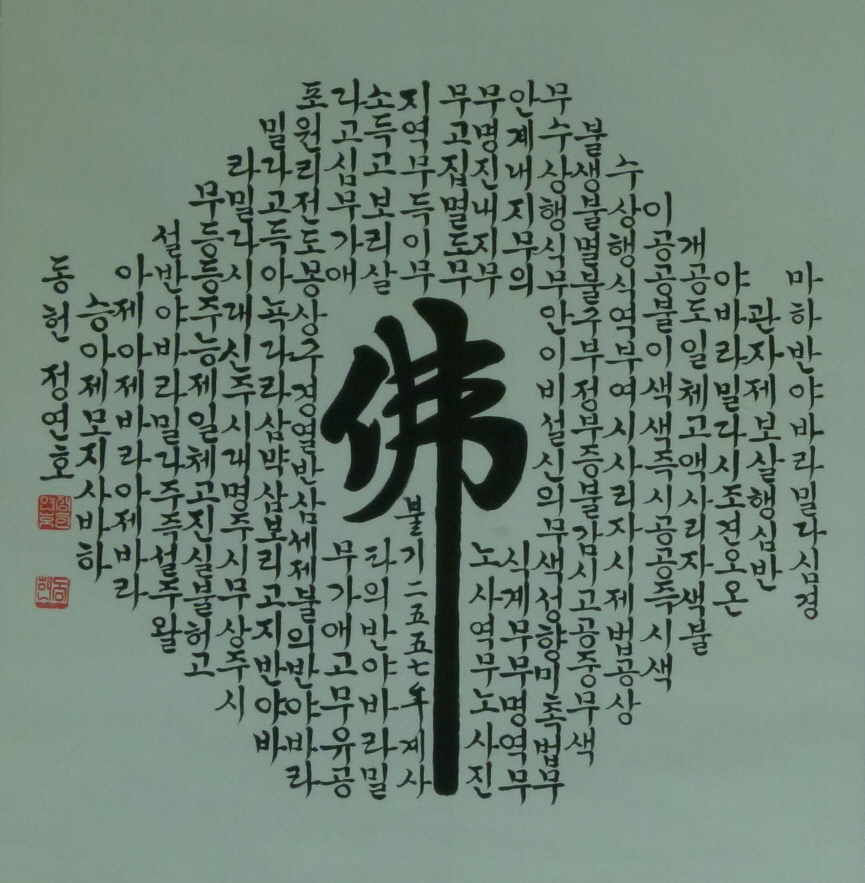 마하반야바라밀다심경
관자제보살행심반
야바라밀다시조견오온
개공도일체고액사리자색불
이공공불이색색즉시공공즉시색
수상행식역부여시사리자시제법공상
불생불멸불구부정부증불감시고공중무색
무수상행식무안이비설신의무색성향미촉법무
안계내지무의
식계무무명역무
무명진내지무
노사역무노사진
무고집멸도무
지역무득이무
소득고보리살
타의반야바라밀
라고심무가애
무가애고무유공
포원리전도몽상구경열반삼세제불의반야바라
밀다고득아뇩다라삼먁삼보리고지반야바
라밀다시대신주시대명주시무상주시
무등등주능제일체고진실불허고
설반야바라밀다주즉설주왈
아제아제바라아제바라
승아제모지사바하
佛
불기二五五七年계사
동헌 정연호